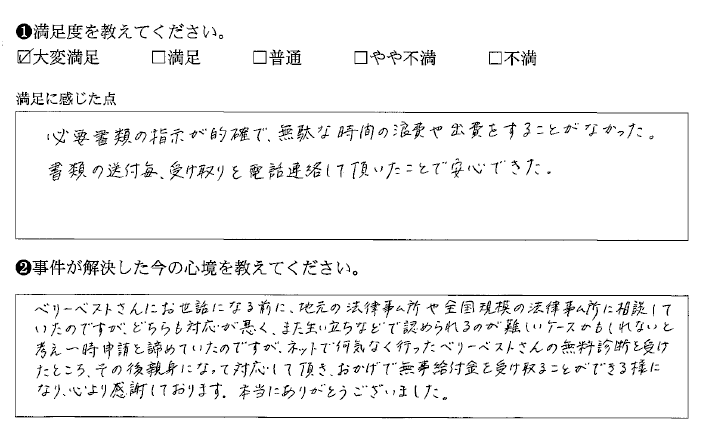 ❶満足度を教えてください。
☑大変満足 □満足 □普通 □やや不満 □不満
満足に感じた点
必要書類の指示が的確で、無駄な時間の浪費や出費をすることがなかった。
書類の送付毎、受け取りを電話連絡して頂いたことで安心できた。
❷事件が解決した今の心境を教えてください。
ベリーベストさんにお世話になる前に、地元の法律事ム所や全国規模の法律事ム所に相談して
いたのですが、どちらも対応が悪く、また生い立ちなどで認められるのが難しいケースかもしれないと
考え一時申請を諦めていたのですが、ネットで何気なく行ったベリーベストさんの無料診断を受け
たところ、その後親身になって対応して頂き、おかげで無事給付金を受け取ることができる様に
なり、心より感謝しております。本当にありがとうございました。